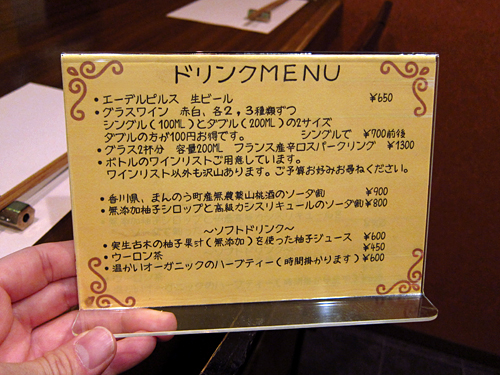 ドリンクMENU
・エーデルピルス 生ビール ¥650
・グラスワイン 赤白、各2,3種類ずつ
シングル(100ML)とダブル(200ML)の2サイズ
ダブルの方が100円お得です。 シングルで ¥700前後
・グラス2杯分 容量200ML フランス産辛口スパークリング ¥1300
・ボトルのワインリストご用意しています。
ワインリスト以外も沢山あります。ご予算お好みお尋ねください。
・香川県、まんのう町産無農薬山桃酒のソーダ割 ¥900
・無添加柚子シロップと高級カシスリキュールのソーダ割 ¥800
～ソフトドリンク～
・実生古木の柚子果汁(無添加)を使った柚子ジュース ¥600
・ウーロン茶 ¥450
・温かいオーガニックのハーブティー(時間掛かります) ¥600